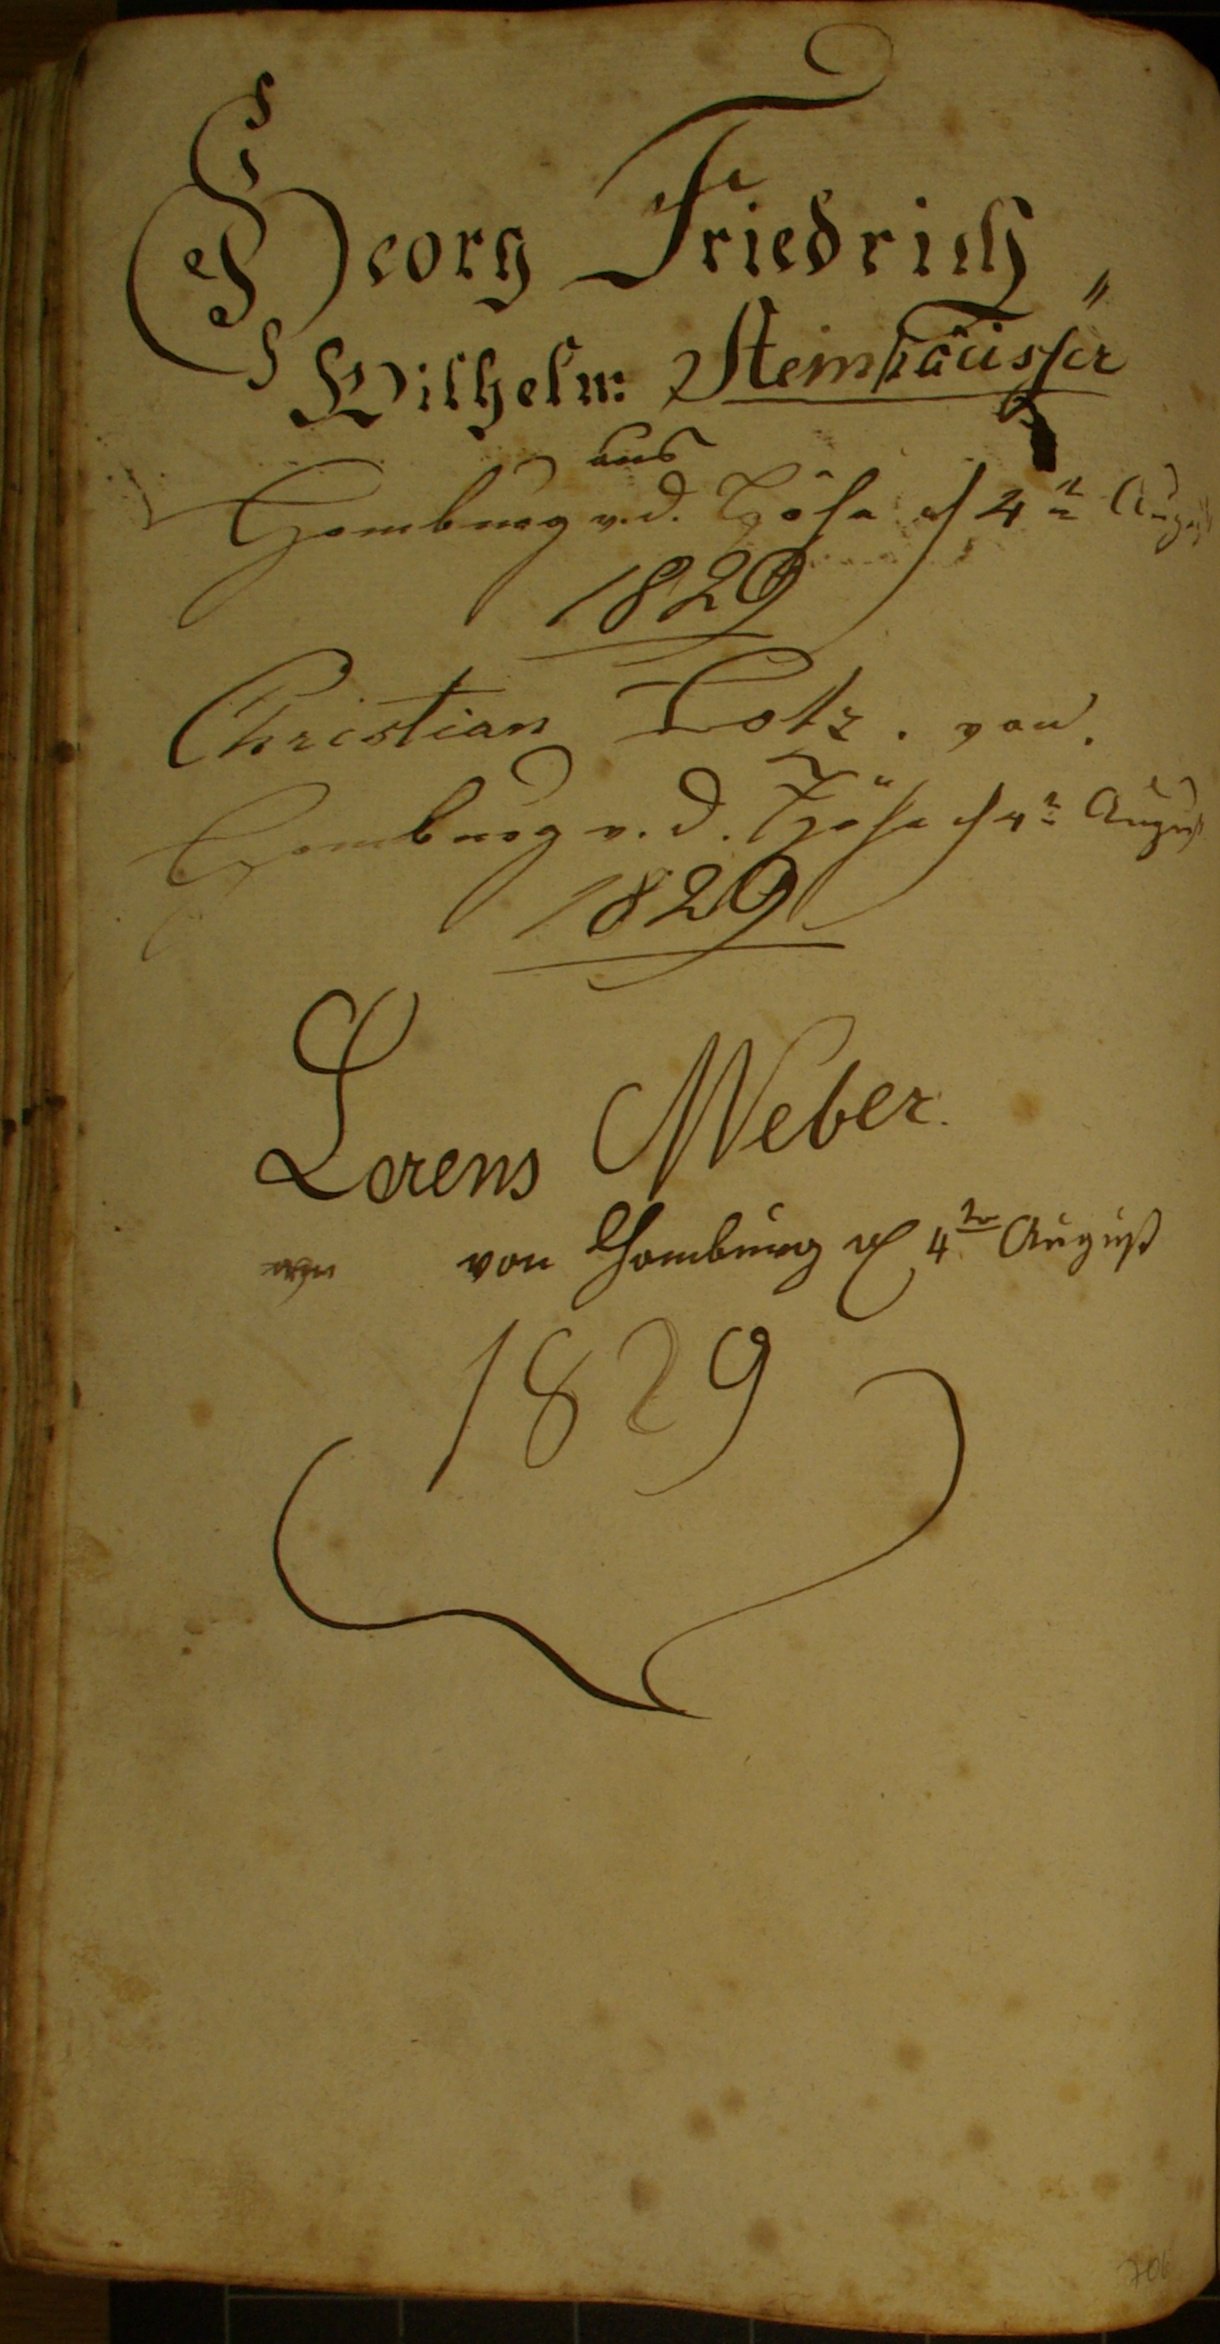 Georg Friedrich
Wilhelm: Steinhäusser
aus
Homburg v. d. Höhe d 4n August
1829
Christian Lotz. von.
Homburg v. d. Höhe d 4n August
1829
Lorens Weber.
von Homburg d 4ten August
1829
706